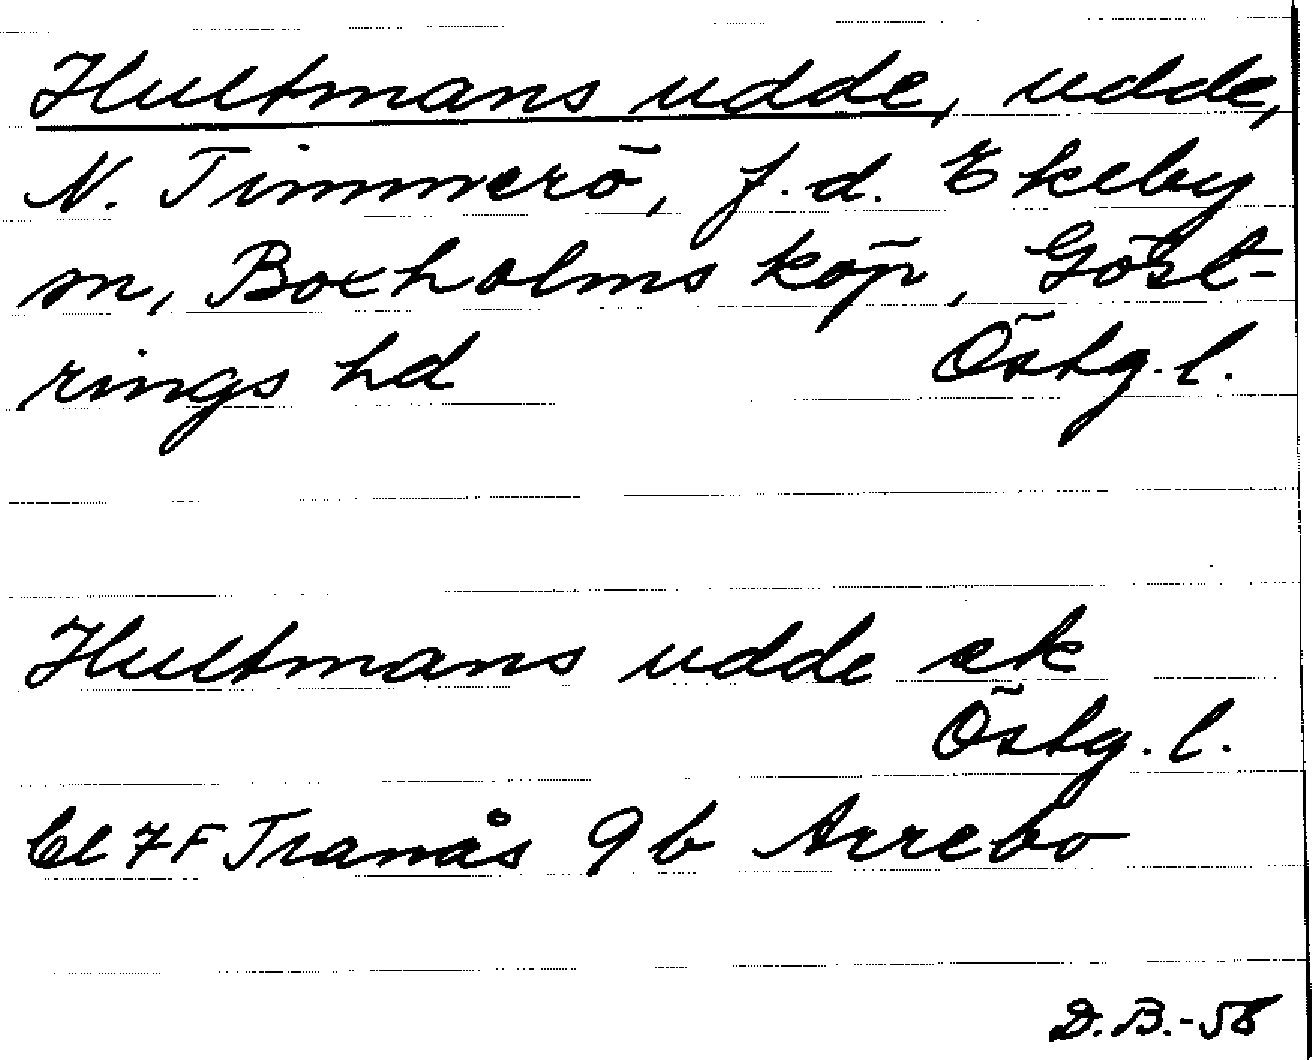 Hultmans udde, udde,
N. Timmerö, f.d. Ekeby
sn, Boxholms köp, Göst-
rings hd Östg.l.
Hultmans udde ek
Östg.l.
Bl 7F Tranås 9b Arrebo
D.B.-58